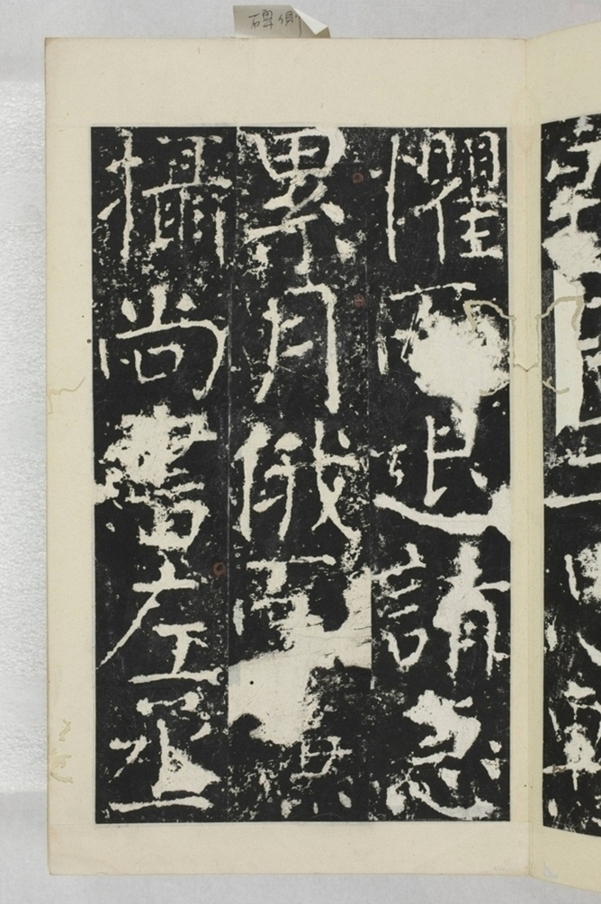 碑側
懼而退請急
累月俄而
攝尚書左丞